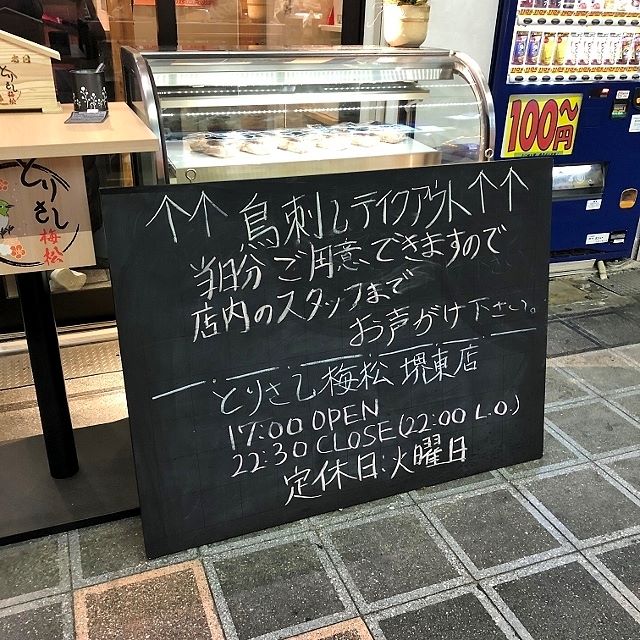 ↑↑鳥刺しテイクアウト↑↑
当日分ご用意できますので
店内のスタッフまで
お声がけ下さい。
とりさし梅松 堺東店
17:00 OPEN
22:30 CLOSE(22:00 L.O.)
定休日:火曜日
とりさし
梅松
100~
円